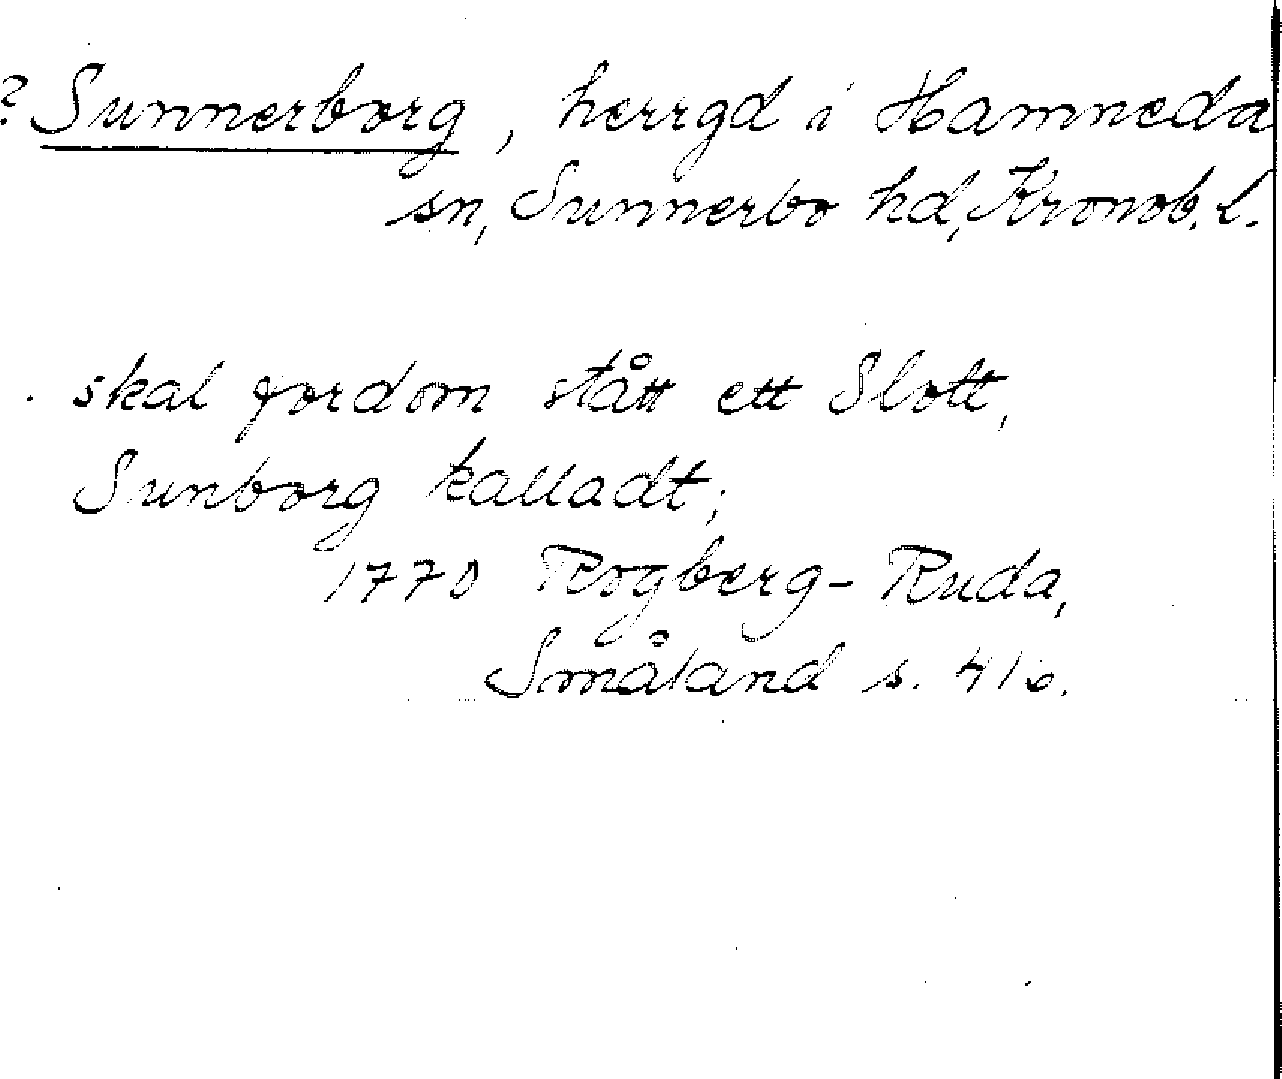 ? Sunnerborg, herrgd i Hamneda
sn, Sunnerbo hd, Kronob. l.
. skal fordom stått ett Slott,
Sunborg kalladt;
1770 Rogberg-Ruda,
Småland s. 416.